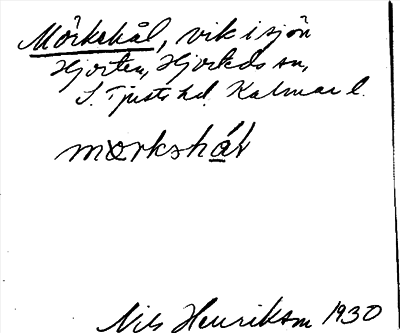 Mörkshål, vik i sjön
Hjorten, Hjorteds sn,
S. Tjusts hd. Kalmar l.
morkshål
Nils Henrikson 1930